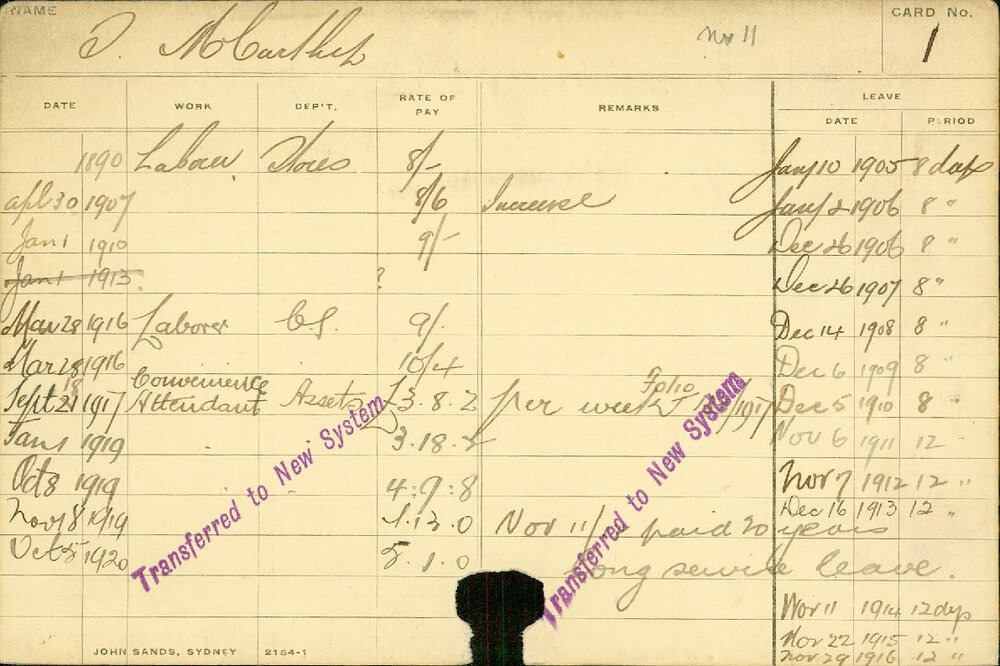 NAME
CARD No.
T. McCarthy
Nov 11
1
DATE WORK DEP'T. RATE OF PAY REMARKS LEAVE
DATE PERIOD
1890 Laborer Stores 8/- Jany 10 1905 8 days
apl 30 1907 8/6 Increase Jany 2 1906 8 "
Jan 1 1910 9/- Dec 26 1906 8 "
Jan 1 1913. ? Dec 26 1907 8 "
Mar 28 1916 Laborer C.S. 9/. Dec 14 1908 8 "
Mar 28 1916 10/4 Dec 6 1909 8 "
Sept 21 18 1917 Convenience Attendant Assets £3.8.2 per week Folio /1917 Dec 5 1910 8 "
Jan 1 1919 3.18.2 Nov 6 1911 12 "
Oct 8 1919 4:9:8 Nov 7 1912 12 "
Nov 18 1919 4.13.0 Nov 11/ paid 20 years Dec 16 1913 12 "
Oct 5 1920 5.1.0 Long service leave.
Nov 11 1914 12 dys
Nov 22 1915 12 "
Nov 29 1916 12 "
Transferred to New System
Transferred to New System
JOHN SANDS, SYDNEY 2154-1